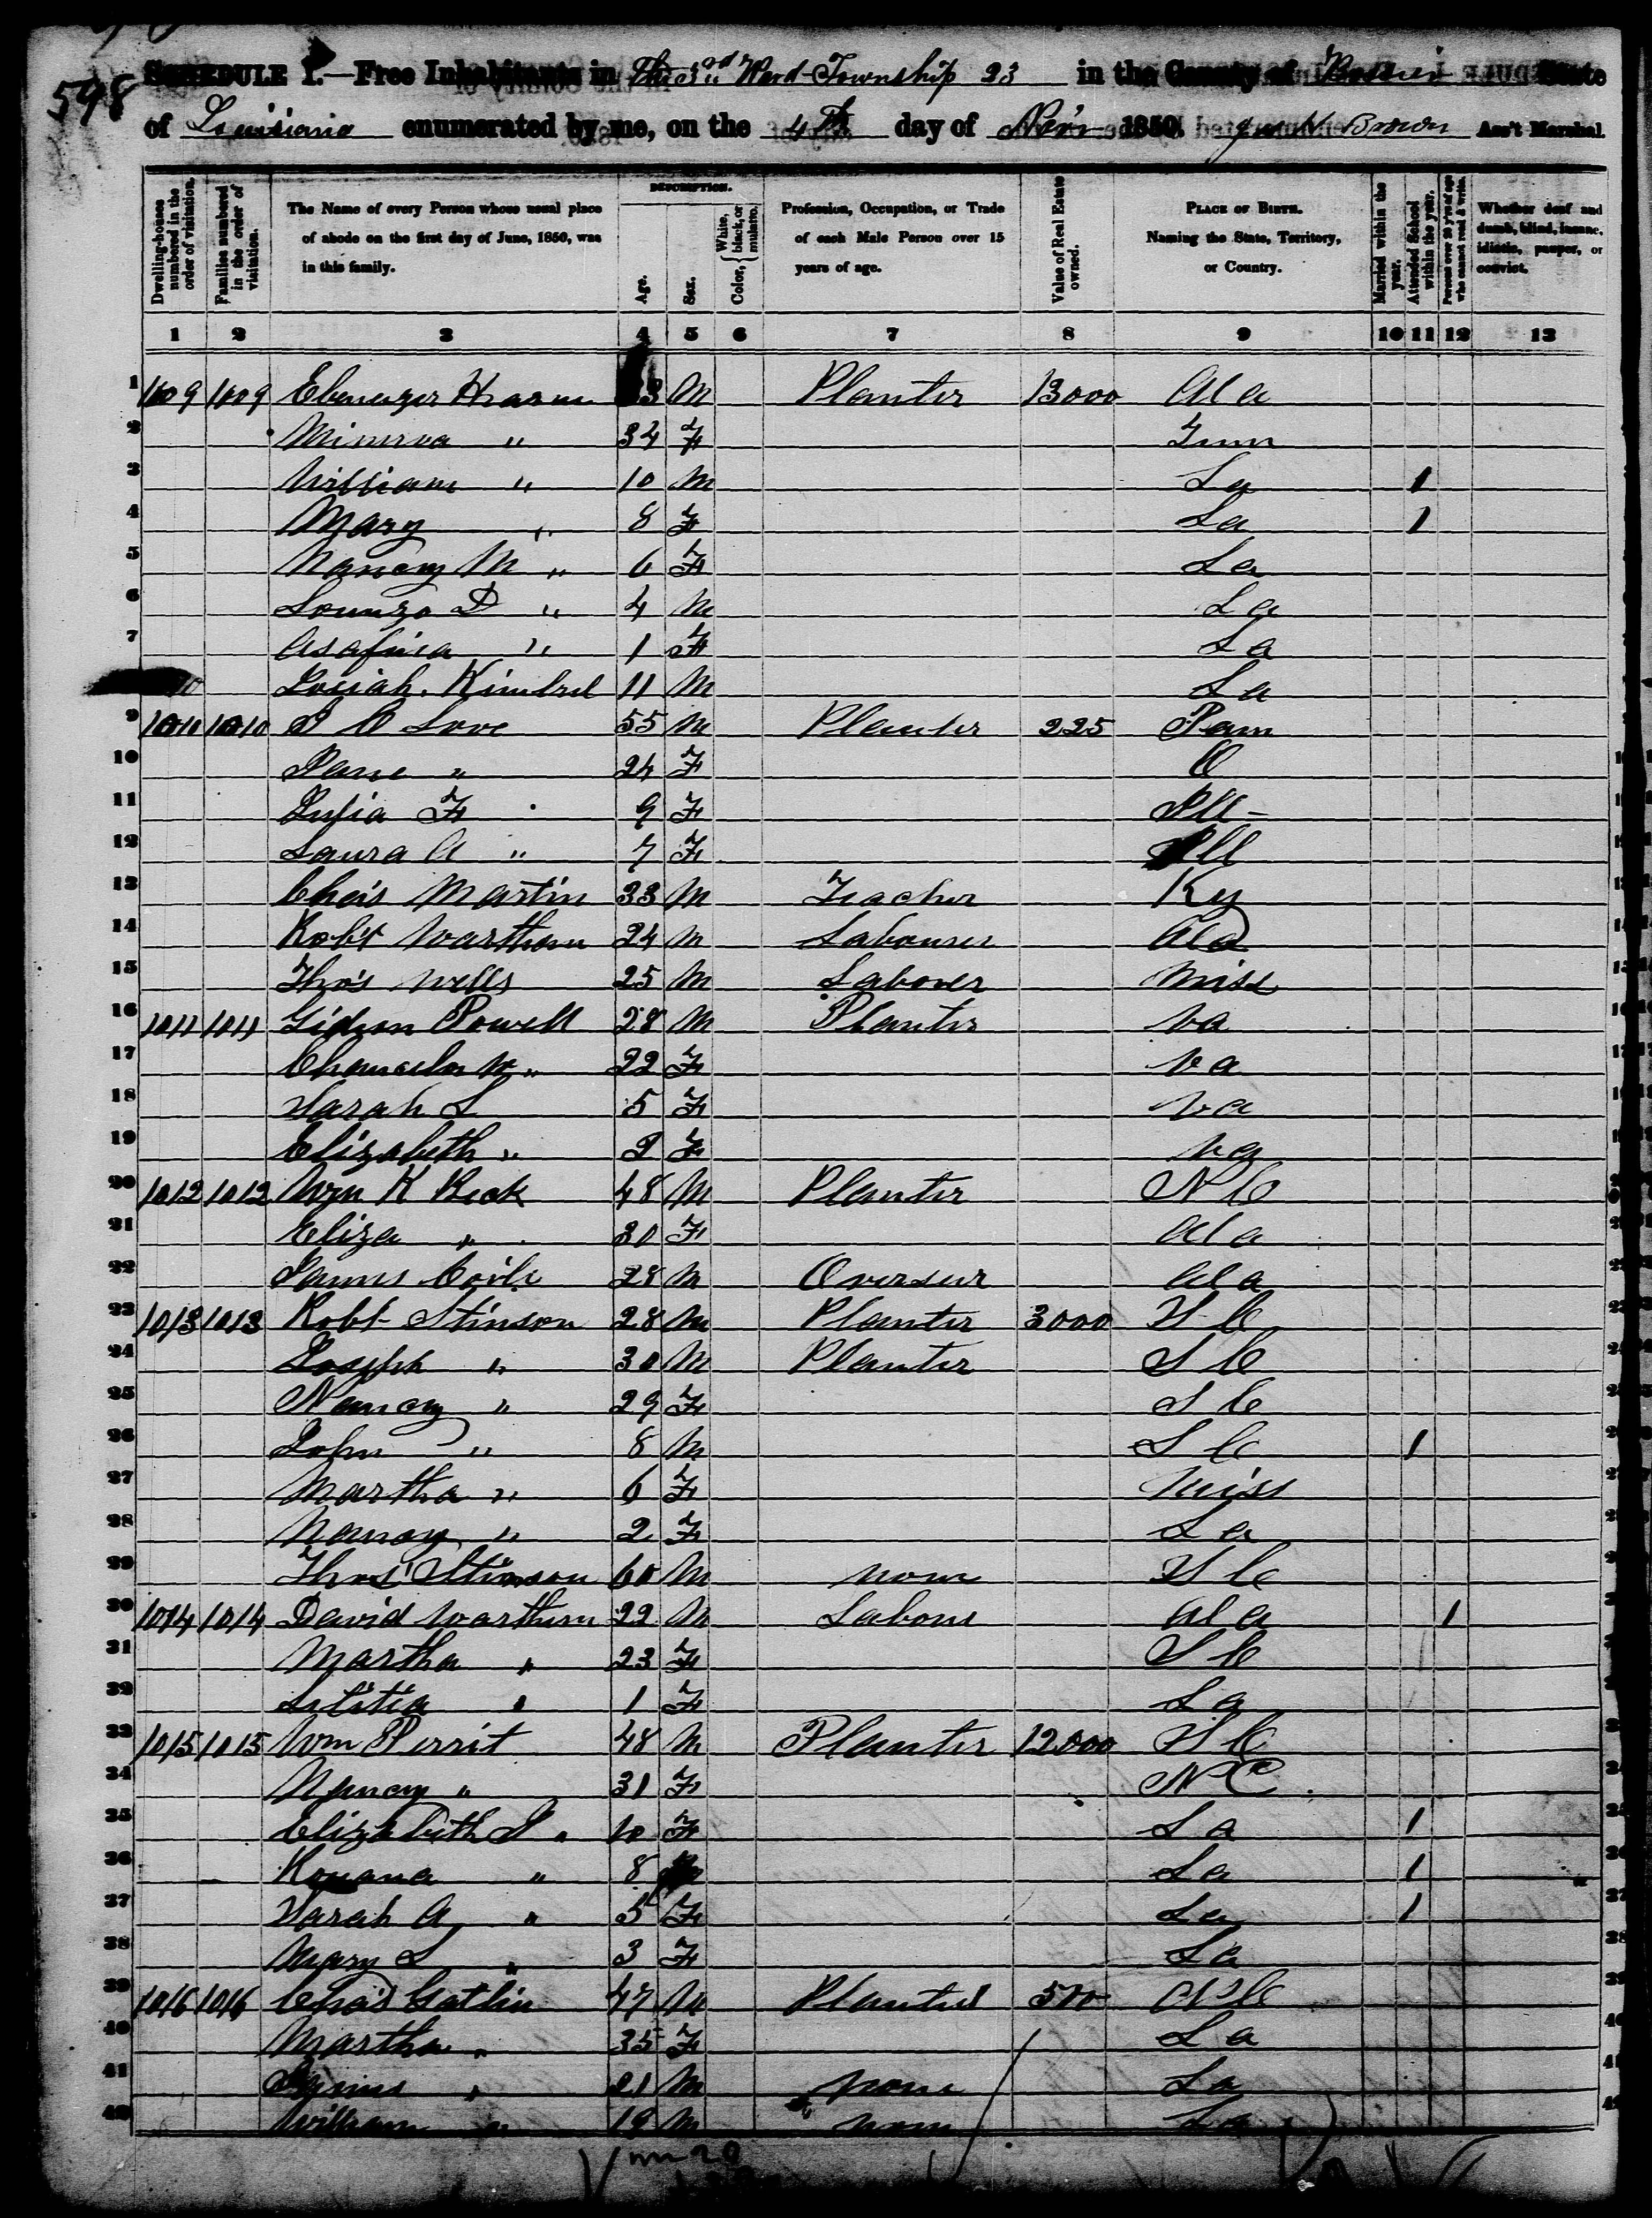 598
SCHEDULE I.—Free Inhabitants in The 3rd Ward Township 23 in the County of Bossier State
of Louisiana enumerated by me, on the 4th day of Nov'r 1850. Jno N. Brown Ass't Marshal.
Dwelling-houses numbered in the order of visitation.
Families numbered in the order of visitation.
The Name of every Person whose usual place of abode on the first day of June, 1850, was in this family.
DESCRIPTION.
Age.
Sex.
Color, White, black, or mulatto.
Profession, Occupation, or Trade of each Male Person over 15 years of age.
Value of Real Estate owned.
PLACE OF BIRTH. Naming the State, Territory, or Country.
Married within the year.
Attended School within the year.
Persons over 20 y'rs of age who cannot read & write.
Whether deaf and dumb, blind, insane, idiotic, pauper, or convict.
1 2 3 4 5 6 7 8 9 10 11 12 13
1 1009 1009 Ebenezer 33 M Planter 13000 Ala
2 Minerva " 34 F Tenn
3 William " 10 M La 1
4 Mary " 8 F La 1
5 Nancy M " 6 F La
6 Lorenzo D " 4 M La
7 " 1 F La
Josiah Kimbrel 11 M La
9 1010 1010 Love 55 M Planter 225
10 Jane " 24 F O
11 Julia F 9 F Ill
12 Laura A " 7 F Ill
13 Cha's Martin 33 M Teacher Ky
14 Rob't Wartham 24 M Labourer Ala
15 Tho's Wells 25 M Laborer Miss
16 1011 1011 Gideon Powell 28 M Planter Va
17 " 22 F Va
18 Sarah S 5 F Va
19 Elizabeth " 2 F Va
20 1012 1012 Wm K Beck 48 M Planter N C
21 Eliza " 30 F Ala
22 James 28 M Overseer Ala
23 1013 1013 Robt Stinson 28 M Planter 3000 S C
24 Joseph " 30 M Planter S C
25 Nancy " 29 F S C
26 John " 8 M S C 1
27 Martha " 6 F Miss
28 Nancy " 2 F La
29 Thos Stinson 60 M None S C
30 1014 1014 David Warthum 22 M Labour Ala 1
31 Martha " 23 F S C
32 Letitia " 1 F La
33 1015 1015 Wm Perrit 48 M Planter 12000 S C
34 Nancy " 31 F N C
35 Elizabeth J " 10 F La 1
36 " 8 La 1
37 Sarah A " 5 F La 1
38 Mary S " 3 F La
39 1016 1016 Cha's Gatlin 47 M Planter 500 N C
40 Martha " 35 F La
41 " 21 M None La
42 William " 19 M None La